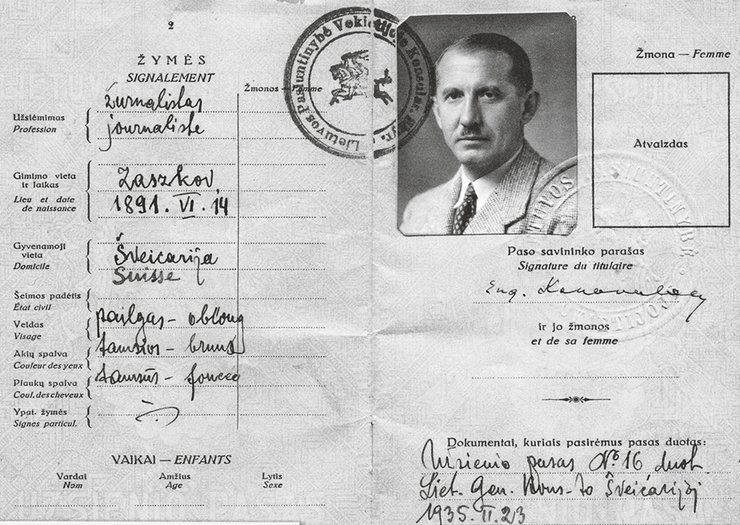 2
ŽYMĖS
SIGNALEMENT
Žmonos — Femme
Užsiėmimas
Profession
žurnalistas
journaliste
Gimimo vieta
ir laikas
Lieu et date
de naissance
Zaszkov,
1891. VI. 14
Gyvenamoji
vieta
Domicile
Šveicarija
Suisse
Šeimos padėtis
État civil
Veidas
Visage
pailgas - oblong
Akių spalva
Couleur des yeux
tamsios - bruns
Plaukų spalva
Coul. des cheveux
tamsūs - foncés
Ypat. žymės
Signes particul.
VAIKAI — ENFANTS
Vardai
Nom
Amžius
Age
Lytis
Sexe
Lietuvos Pasiuntinybė
Žmona — Femme
Atvaizdas
Paso savininko parašas
Signature du titulaire
Eug. Konovalec
ir jo žmonos
et de sa femme
Dokumentai, kuriais pasirėmus pasas duotas:
Užsienio pasas № 16 duot.
Liet. Gen. Kons-to Šveicarijoj
1935. II. 23